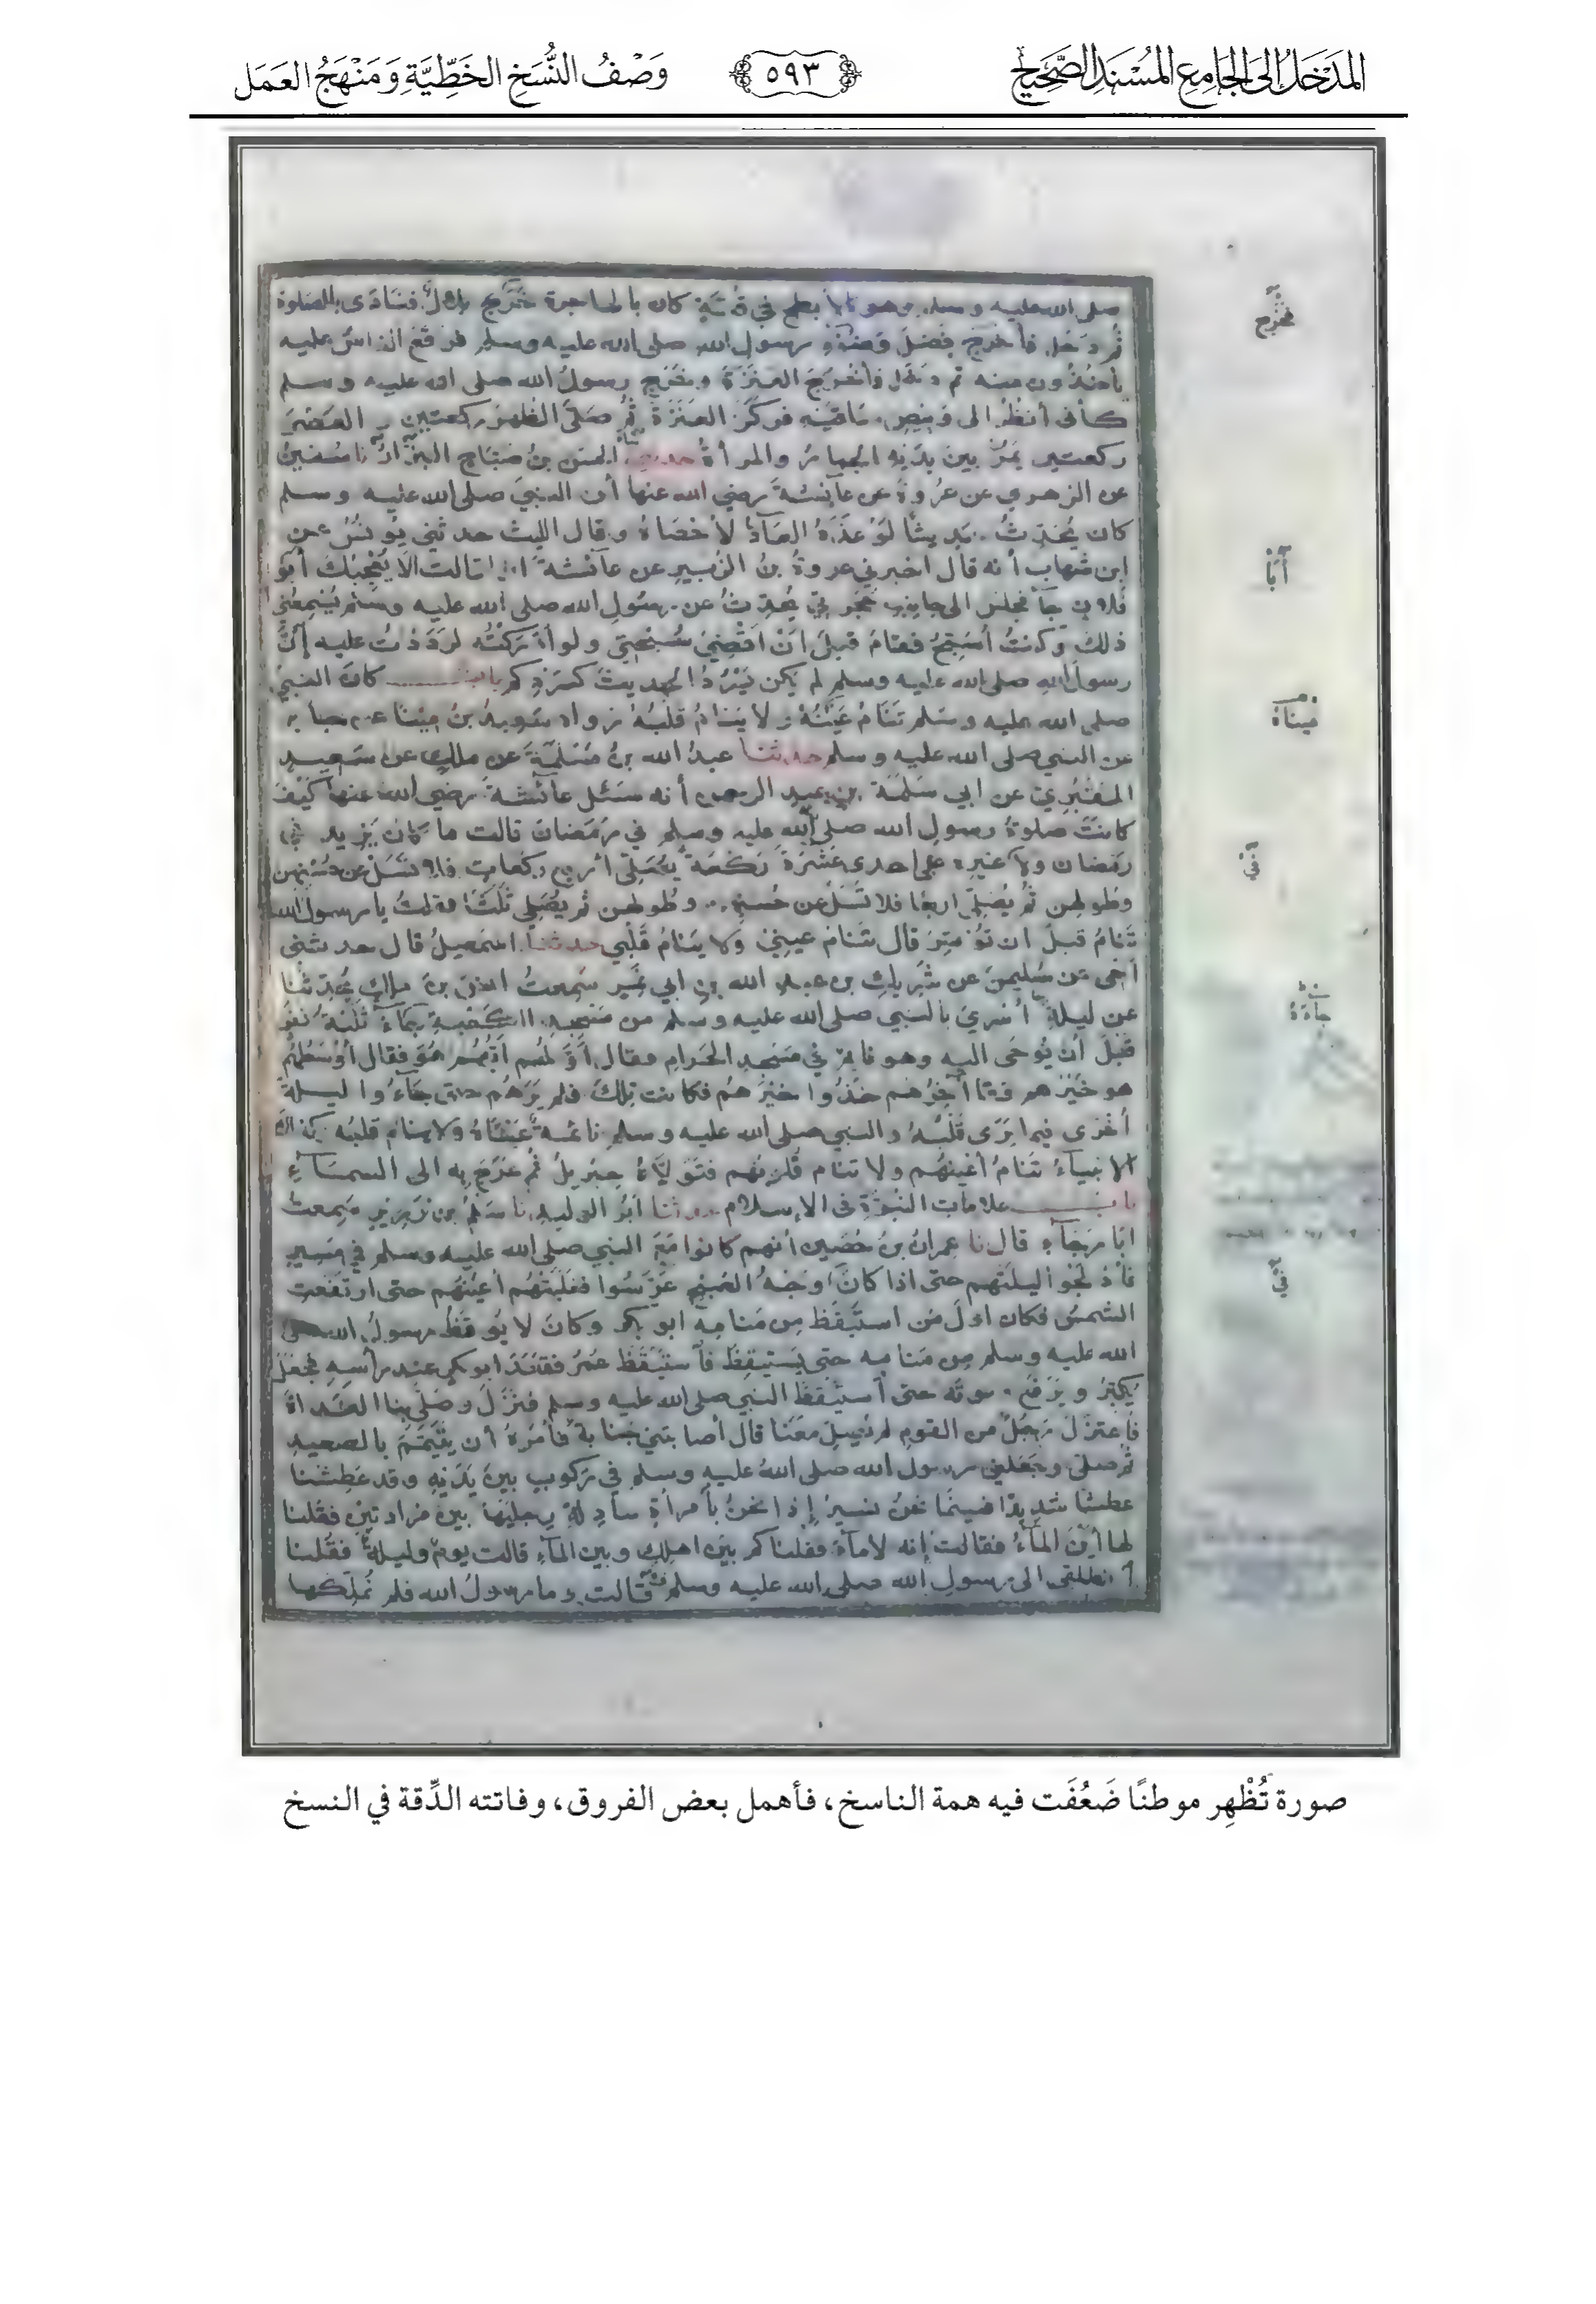 المَدْخَلُ إلى الجَامِعِ المُسْنَدِ الصَّحِيْحِ
٥٩٣
وَصْفُ النُّسَخِ الخَطِّيَّةِ وَمَنْهَجُ العَمَل
صلى الله عليه وسلم وهو بالأبطح في قُبَّةٍ كان بالهاجرة خَرَجَ بلالٌ فنَادَى بالصلوة
ثُم دَخَل فأخرَجَ فَضْلَ وَضُوْءِ رسول الله صلى الله عليه وسلم فوقع الناسُ عليه
يأخذُون منه ثم دخَل فأخْرَجَ العَنَزَةَ وخَرَجَ رسولُ الله صلى الله عليه وسلم
كأنى أنظُرُ الى وَبِيصِ ساقَيْه فركَزَ العَنَزَةَ ثُم صَلَّى الظُهرَ ركعتين و العَصْرَ
ركعتين يَمُرُّ بينَ يدَيْهِ الحِمارُ والمرأةُ الحسن بنُ صَبَّاحٍ البزَّارُ نا سُفينُ
عن الزهري عن عُروةَ عن عآئشةَ رضي الله عنها أن النبيَ صلى الله عليه وسلم
كان يُحَدِّثُ حديثًا لَوْ عَدَّهُ العَآدُّ لأحْصَاهُ وقال الليث حدثني يُونسُ عن
ابن شهاب أنه قال اخبرني عروةُ بنُ الزُبيرِ عن عآئشةَ قالت ألا يُعْجِبُكَ أبو
فُلانٍ جآءَ فجلسَ الى جانِبِ حُجْرتِي يُحدِّثُ عن رسُولِ الله صلى الله عليه وسلم يُسْمِعُني
ذلك وكنتُ أُسَبِّحُ فقامَ قبلَ انْ اقْضِيَ سُبْحتِي ولو أدْرَكْتُه لرَدَدْتُ عليه إنَّ
رسولَ اللهِ صلى الله عليه وسلم لم يكن يَسْرُدُ الحديثَ كسَرْدِكم باب كانَ النبيُ
صلى الله عليه وسلم تَنَامُ عَيْنُهُ ولا يَنامُ قلبُهُ رواه سَعِيدُ بنُ مِيْنا عن جابر
عن النبي صلى الله عليه وسلم حدثنا عبدُ الله بنُ مَسْلَمَةَ عن مالكٍ عن سَعيدٍ
المَقْبُرِيّ عن ابي سَلَمَةَ بنِ عبد الرحمن أنه سَئَل عائشةَ رضي الله عنها كَيْفَ
كانتْ صلوةُ رسولِ الله صلى الله عليه وسلم في رَمَضانَ قالت ما كان يَزيد في
رمضان ولا غيرِه على احدى عَشْرَةَ رَكْعَةً يُصَلِّي أربع ركعات فلا تَسَلْ عن حُسْنِهن
وطُولِهن ثُم يُصَلِّي اربعًا فلا تَسَلْ عن حُسْنِهن وطُولهن ثم يُصَلِّي ثَلثًا فقلتُ يا رسول الله
تَنامُ قبلَ ان تُوْتِرَ قال تَنام عيني ولا يَنامُ قَلْبي حدثنا اسمعيلُ قال حدثنى
أخى عن سُليمنَ عن شَرِيكِ بن عبد الله بنِ ابي نَمِر سَمِعتُ انسَ بنَ مالكٍ يُحدِّثُنا
عن ليلةِ أُسْرِيَ بالنبي صلى الله عليه وسلم من مَسْجِدِ الكَعْبةِ جَآءَ ثَلثَةُ نَفَرٍ
قَبْلَ أن يُوحَى اليه وهو نائمٌ في مَسْجِدِ الحَرامِ فقال أوَّلُهم أيُّهُم هُوَ فقال أوْسَطُهُم
هو خَيْرُهم وقال آخِرُهم خُذُوا خَيْرَهُم فكانت تِلكَ فلم يَرَهُم حتى جَآءُوا ليلةً
أُخْرى فيما يَرَى قَلْبُهُ والنبي صلى الله عليه وسلم نائمةٌ عَيْنَاهُ ولا ينام قلبُه وكذلك
الانبيآءُ تَنامُ أعْيُنُهُم ولا تنام قُلوبُهم فتَوَلَّاهُ جِبْريلُ ثُم عَرَجَ به الى السمآءِ
باب علامات النُبُوَّةِ فى الإسلام حدثنا أبُو الوليدِ نا سَلْمُ بن زَرِيرٍ سَمِعتُ
ابَا رَجآءٍ قال نا عِمرانُ بنُ حُصَينٍ أنهم كانوا مَعَ النبي صلى الله عليه وسلم في مَسِيرٍ
فأدْلَجُوا ليلتَهم حتى اذا كانَ وَجْهُ الصُبْحِ عَرَّسُوا فغَلَبَتْهُم أعْيُنُهم حتى ارتفَعت
الشمسُ فكان اولَ مَن استَيْقَظ مِن مَنامِه ابو بكر وكانَ لا يُوقَظُ رسولُ الله صلى
الله عليه وسلم مِن مَنامِه حتى يَسْتَيقِظَ فاسْتَيْقَظَ عُمَرُ فقَعَدَ ابو بكرٍ عند رأسِه فجعَلَ
يُكَبِّرُ ويَرْفَعُ صوتَه حتى أستَيْقظ النبي صلى الله عليه وسلم فنَزَلَ وصَلَّى بنا الغَداةَ
فاعتَزَلَ رَجُلٌ من القوم لم يُصلِّ معَنَا قال أصابَتني جَنابةٌ فأمَرَهُ أن يَتَيَمَّمَ بالصعيدِ
ثُم صلى وجَعَلني رسول الله صلى اللهُ عليه وسلم في رَكوبٍ بينَ يَدَيْهِ وقد عَطِشْنا
عطشًا شَدِيدًا فبينَمَا نحنُ نسيرُ إذا نحنُ بأمرأةٍ سادِلةٍ رِجليَهَا بينَ مَزادتَيْنِ فقُلنا
لها أيْنَ المآءُ فقالت إنه لامآءَ فقلنا كم بَيْنَ اهلِكِ وبين المآءِ قالت يومٌ وليلةٌ فقُلنا
انطلقى الى رسولِ الله صلى الله عليه وسلم قالت وما رسُولُ الله فلم نُمَلِّكها
فخَرَج
أبَا
ميناءَ
في
جآءَهُ
في
صورة تُظْهِر موطنًا ضَعُفَت فيه همة الناسخ، فأهمل بعض الفروق، وفاتته الدِّقة في النسخ